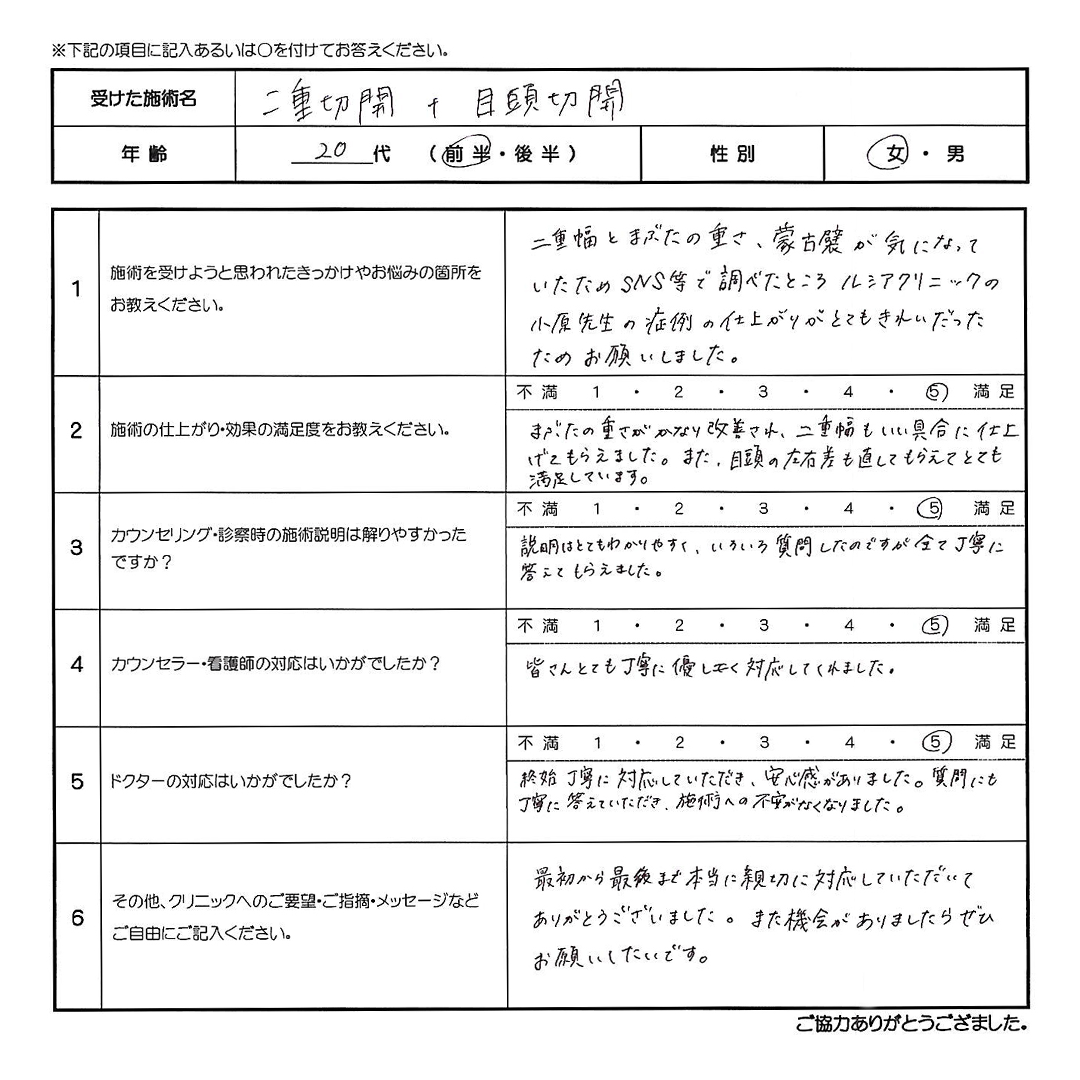 ※下記の項目に記入あるいは○を付けてお答えください。
受けた施術名 二重切開 + 目頭切開
年齢 20代 (前半・後半) 性別 女・男
1 施術を受けようと思われたきっかけやお悩みの箇所を
お教えください。
二重幅とまぶたの重さ、蒙古襞が気になって
いたためSNS等で調べたところ ルシアクリニックの
小原先生の症例の仕上がりがとてもきれいだった
ためお願いしました。
2 施術の仕上がり・効果の満足度をお教えください。
不満 1 ・ 2 ・ 3 ・ 4 ・ 5 満足
まぶたの重さがかなり改善され、二重幅もいい具合に仕上
げてもらえました。また、目頭の左右差も直してもらえてとても
満足しています。
3 カウンセリング・診察時の施術説明は解りやすかった
ですか?
不満 1 ・ 2 ・ 3 ・ 4 ・ 5 満足
説明はとてもわかりやすく、いろいろ質問したのですが全て丁寧に
答えてもらえました。
4 カウンセラー・看護師の対応はいかがでしたか?
不満 1 ・ 2 ・ 3 ・ 4 ・ 5 満足
皆さんとても丁寧に優しく対応してくれました。
5 ドクターの対応はいかがでしたか?
不満 1 ・ 2 ・ 3 ・ 4 ・ 5 満足
終始丁寧に対応していただき、安心感がありました。質問にも
丁寧に答えていただき、施術への不安がなくなりました。
6 その他、クリニックへのご要望・ご指摘・メッセージなど
ご自由にご記入ください。
最初から最後まで本当に親切に対応していただいて
ありがとうございました。また機会がありましたらぜひ
お願いしたいです。
ご協力ありがとうござました。